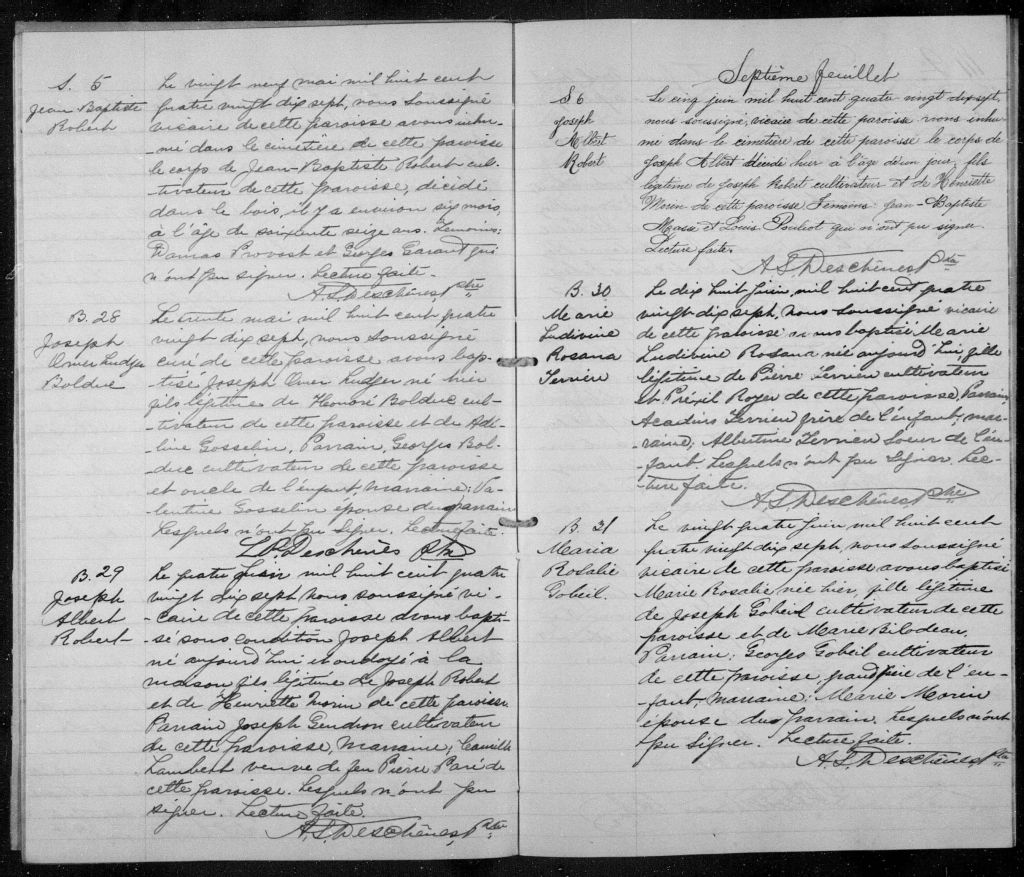 S. 5
Jean Baptiste
Robert
Le vingt neuf mai mil huit cent
quatre vingt dix sept, nous soussigné
vicaire de cette paroisse avons inhu-
mé dans le cimetière de cette paroisse
le corps de Jean-Baptiste Robert cul-
tivateur de cette paroisse, décédé
dans le bois, il y a environ six mois,
à l'âge de soixante seize ans. Temoins:
Damas Provost et Georges Garant qui
n'ont pu signer. Lecture faite.
A.S. Deschênes Ptre
B. 28
Joseph
Omer Ludger
Bolduc
Le trente mai mil huit cent quatre
vingt dix sept, nous soussigné
curé de cette paroisse avons bap-
tisé Joseph Omer Ludger né hier
fils légitime de Honoré Bolduc cul-
tivateur de cette paroisse et de Adé-
line Gosselin, Parrain, Georges Bol-
duc cultivateur de cette paroisse
et oncle de l'enfant, marraine: Va-
lentine Gosselin épouse du parrain
Lesquels n'ont pu signer. Lecture faite.
Deschênes Ptre
B. 29
Joseph
Albert
Robert
Le quatre Juin mil huit cent quatre
vingt dix sept nous soussigné vi-
caire de cette paroisse avons bapti-
sé sous condition Joseph Albert
né aujourd'hui et ondoyé à la
maison fils légitime de Joseph Robert
et de Henriette Morin de cette paroisse
Parrain Joseph Gendron cultivateur
de cette paroisse, Marraine, Camille
Lambert veuve de feu Pierre Paré de
cette paroisse. Lesquels n'ont pu
signer. Lecture faite.
A.S. Deschênes, Ptre
Septième feuillet
S 6
Joseph
Albert
Robert
Le cinq juin mil huit cent quatre vingt dix sept,
nous soussigné, vicaire de cette paroisse avons inhu-
mé dans le cimetière de cette paroisse le corps de
Joseph Albert décédé hier à l'âge d'un jour, fils
légitime de Joseph Robert cultivateur et de Henriette
Morin de cette paroisse Temoins: Jean-Baptiste
Masse et Louis Pouliot qui n'ont pu signer
Lecture faite.
A.S. Deschênes Ptre
B. 30
Marie
Ludivine
Rosana
Terrien
Le dix huit Juin, mil huit cent quatre
vingt dix sept, nous soussigné vicaire
de cette paroisse avons baptisé Marie
Ludivine Rosana née aujourd'hui, fille
légitime de Pierre Terrien cultivateur
et Préxil Royer de cette paroisse, Parrain,
Acadius Terrien frère de l'enfant, mar-
raine; Albertine Terrien Soeur de l'en-
fant. Lesquels n'ont pu signer. Lec-
ture faite.
A.S. Deschênes, Ptre
B. 31
Maria
Rosalie
Gobeil.
Le vingt quatre juin mil huit cent
quatre vingt dix sept, nous soussigné
vicaire de cette paroisse avons baptisé
Marie Rosalie née hier, fille légitime
de Joseph Gobeil cultivateur de cette
paroisse et de Marie Bilodeau.
Parrain: Georges Gobeil cultivateur
de cette paroisse, grand'père de l'en-
fant, Marraine: Marie Morin
épouse du parrain, Lesquels n'ont
pu signer. Lecture faite.
A.S. Deschênes, Ptre